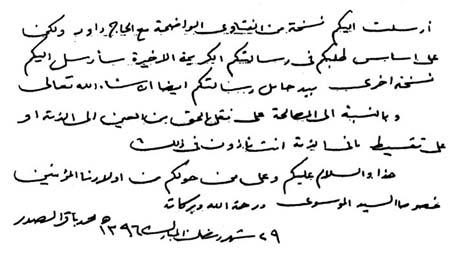 أرسلت اليكم نسخة من الفتاوى الواضحة مع الحاج داود ولكن
على اساس طلبكم في رسالتكم الكريمة الاخيرة سأرسل اليكم
نسخة اخرى بيد حامل رسالتكم ايضا ان شاء الله تعالى
وبالنسبة الى المصالحة على نقل الحق من العين الى الذمة او
على تقسيط ما في الذمة انت مأذون في ذلك
هذا والسلام عليكم وعلى من حولكم من اولادنا المؤمنين
خصوصا السيد الموسوي ورحمة الله وبركاته
٢٩ شهر رمضان المبارك ١٣٩٦ه محمد باقر الصدر